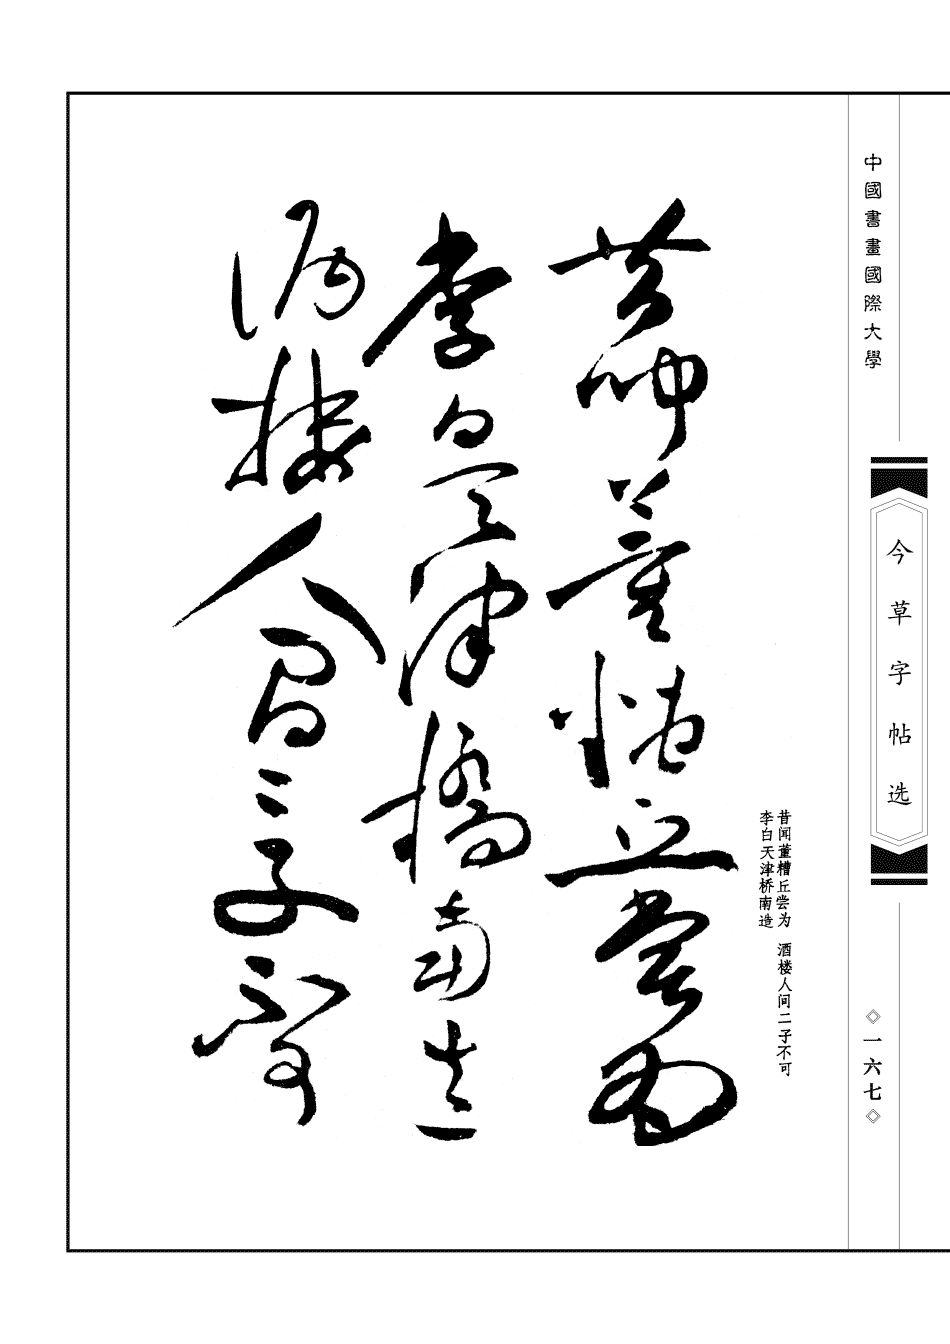 中國書畫國際大學
今草字帖选
◇一六七◇
昔闻董糟丘尝为　酒楼人问二子不可
李白天津桥南造
昔聞董糟丘嘗為
李白天津橋南造
酒樓人問二子不可